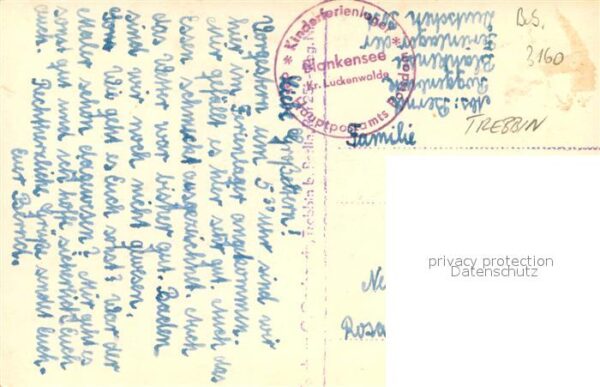 Liebe Großeltern!
Vorgestern um 5⁰⁰ Uhr sind wir
hier im Ferienlager angekommen.
Mir gefällt es hier sehr gut auch das
Essen schmeckt ausgezeichnet. Auch
das Wetter war bisher gut. Baden
sind wir noch nicht gewesen.
Wie geht es Euch sonst? War der
Maler schon dagewesen? Mir geht es
sonst gut und ich hoffe ziemlich Euch
auch. Recht herzliche Grüße sendet Euch
Euer Bernd.
* Kinderferienlager *
Blankensee
Kr. Luckenwalde
des Hauptpostamts Potsdam
Abs: Bernd
Roggenbuck
Blankensee
Ferienlager der
Deutschen Post
B.S.
3160
TREBBIN
Familie
Ne
Rosa
privacy protection
Datenschutz